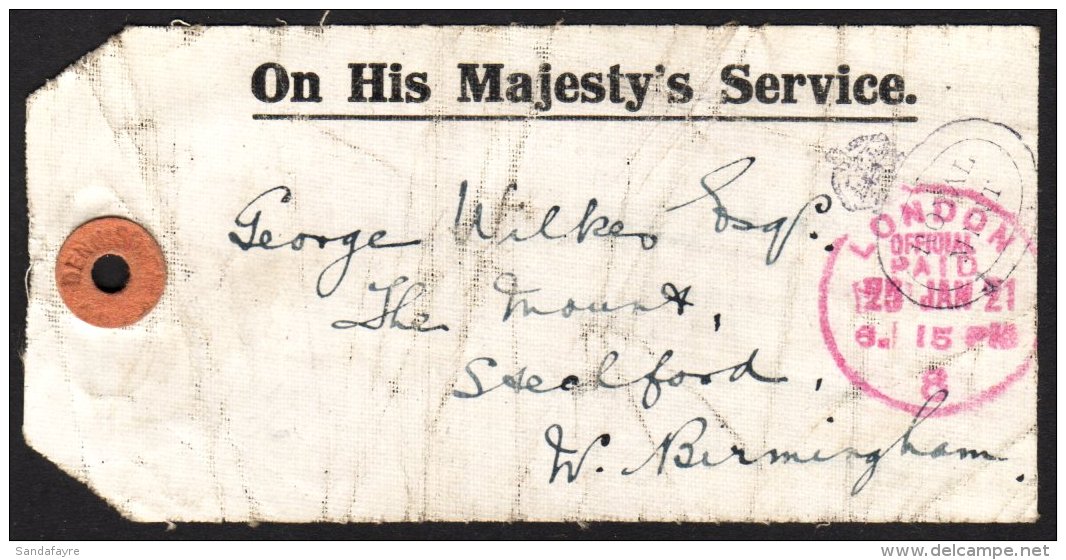 On His Majesty's Service.
George Wilkes Esqr.
The Mount,
Stechford,
W. Birmingham.
LONDON
OFFICIAL
PAID
29 JAN 21
6. 15 PM
8
DENNISON
Sandafayre
delcampe.net